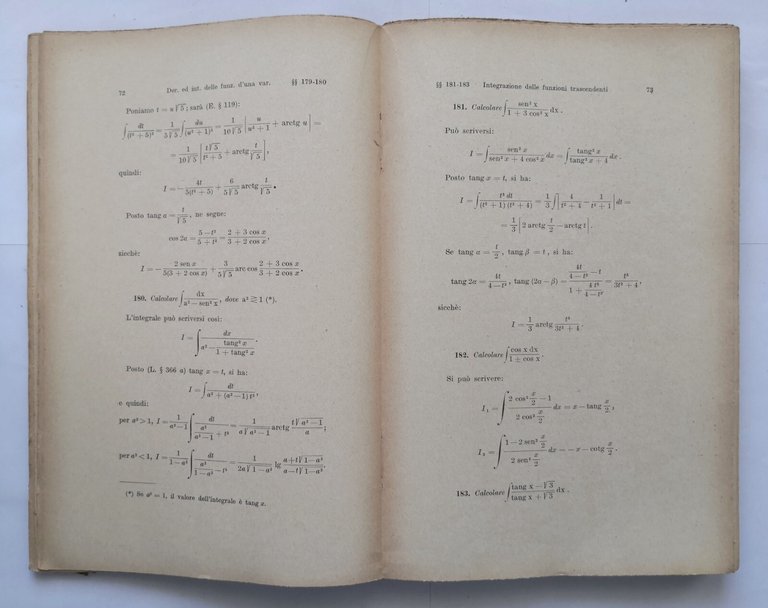 72 Der. ed int. delle funz. d'una var. §§ 179-180
Poniamo t = u√5; sarà (E. § 119):
∫ dt/(t²+5)² = 1/(5√5) ∫ du/(u²+1)² = 1/(10√5) | u/(u²+1) + arctg u | =
= 1/(10√5) | t√5/(t²+5) + arctg t/√5 |,
quindi:
I = − 4t/(5(t²+5)) + 6/(5√5) arctg t/√5.
Posto tang α = t/√5, ne segue:
cos 2α = (5−t²)/(5+t²) = (2+3 cos x)/(3+2 cos x),
sicchè:
I = − 2 sen x/(5(3+2 cos x)) + 3/(5√5) arc cos (2+3 cos x)/(3+2 cos x).
180. Calcolare ∫ dx/(a²−sen² x), dove a² ≷ 1 (*).
L'integrale può scriversi così:
I = ∫ dx/(a² − tang² x/(1+tang² x)).
Posto (L. § 366 a) tang x = t, si ha:
I = ∫ dt/(a²+(a²−1) t²),
e quindi:
per a²>1, I = 1/(a²−1) ∫ dt/(a²/(a²−1) + t²) = 1/(a√a²−1) arctg t√a²−1/a;
per a²<1, I = 1/(1−a²) ∫ dt/(a²/(1−a²) − t²) = 1/(2a√1−a²) lg (a+t√1−a²)/(a−t√1−a²).
(*) Se a² = 1, il valore dell'integrale è tang x.
§§ 181-183 Integrazione delle funzioni trascendenti 73
181. Calcolare ∫ sen² x/(1+3 cos² x) dx.
Può scriversi:
I = ∫ sen² x/(sen² x+4 cos² x) dx = ∫ tang² x/(tang² x+4) dx.
Posto tang x = t, si ha:
I = ∫ t² dt/((t²+1)(t²+4)) = 1/3 ∫ | 4/(t²+4) − 1/(t²+1) | dt =
= 1/3 | 2 arctg t/2 − arctg t |.
Se tang α = t/2, tang β = t, si ha:
tang 2α = 4t/(4−t²), tang (2α−β) = (4t/(4−t²) − t)/(1 + 4t²/(4−t²)) = t³/(3t²+4),
sicchè:
I = 1/3 arctg t³/(3t²+4).
182. Calcolare ∫ cos x dx/(1+cos x).
Si può scrivere:
I₁ = ∫ (2 cos² x/2 − 1)/(2 cos² x/2) dx = x − tang x/2,
I₂ = ∫ (1 − 2 sen² x/2)/(2 sen² x/2) dx = − x − cotg x/2.
183. Calcolare ∫ (tang x − √3)/(tang x + √3) dx.